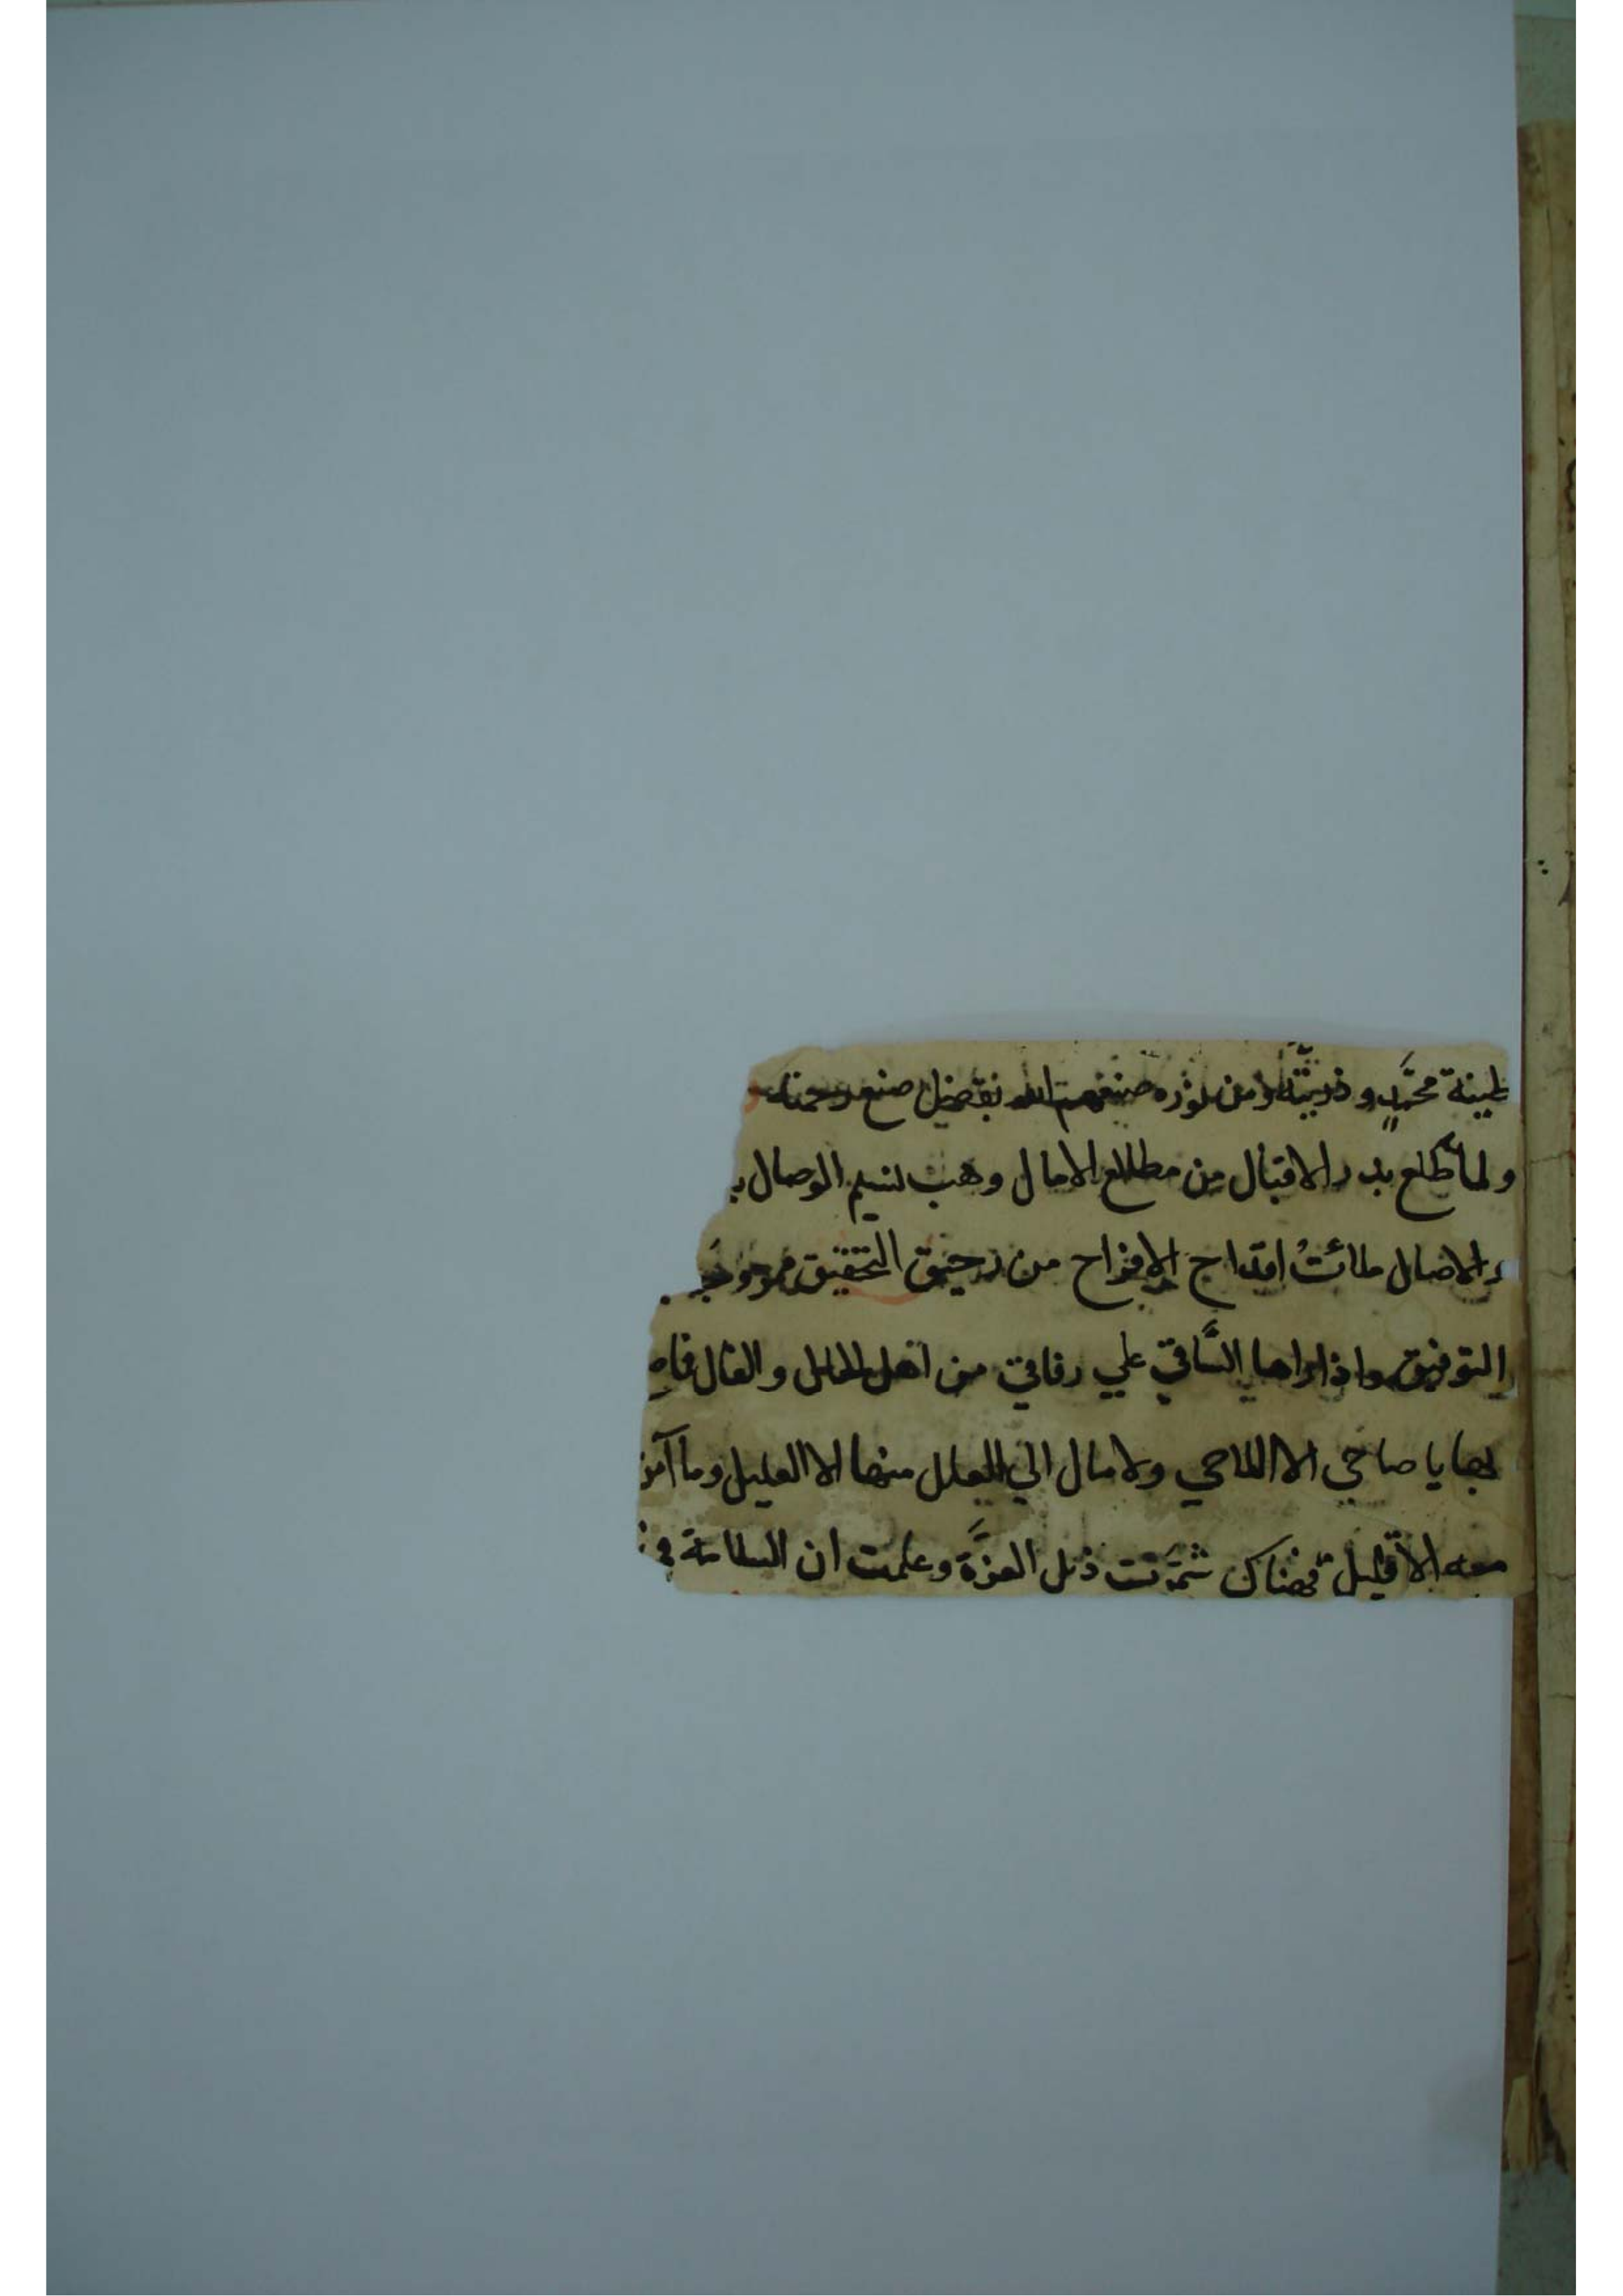 طينة محمد وذريته ومن بلوره صنفهم الله بتفضيل صنع رحمته
ولما طلع بدر الاقبال من مطالع الامال وهب نسيم الوصال
والاصال ملأتُ اقداح الافراح من رحيق التحقيق
التوفيق واذا براها السَّاقي علي رفاقي من اهل الحال والقال
بها يا صاحي الا الماحي ولا مال الي العلل منها الا العليل وما آمن
معه الا قليل فهناك شمَّرت ذيل العزة وعلمت ان السلامة في